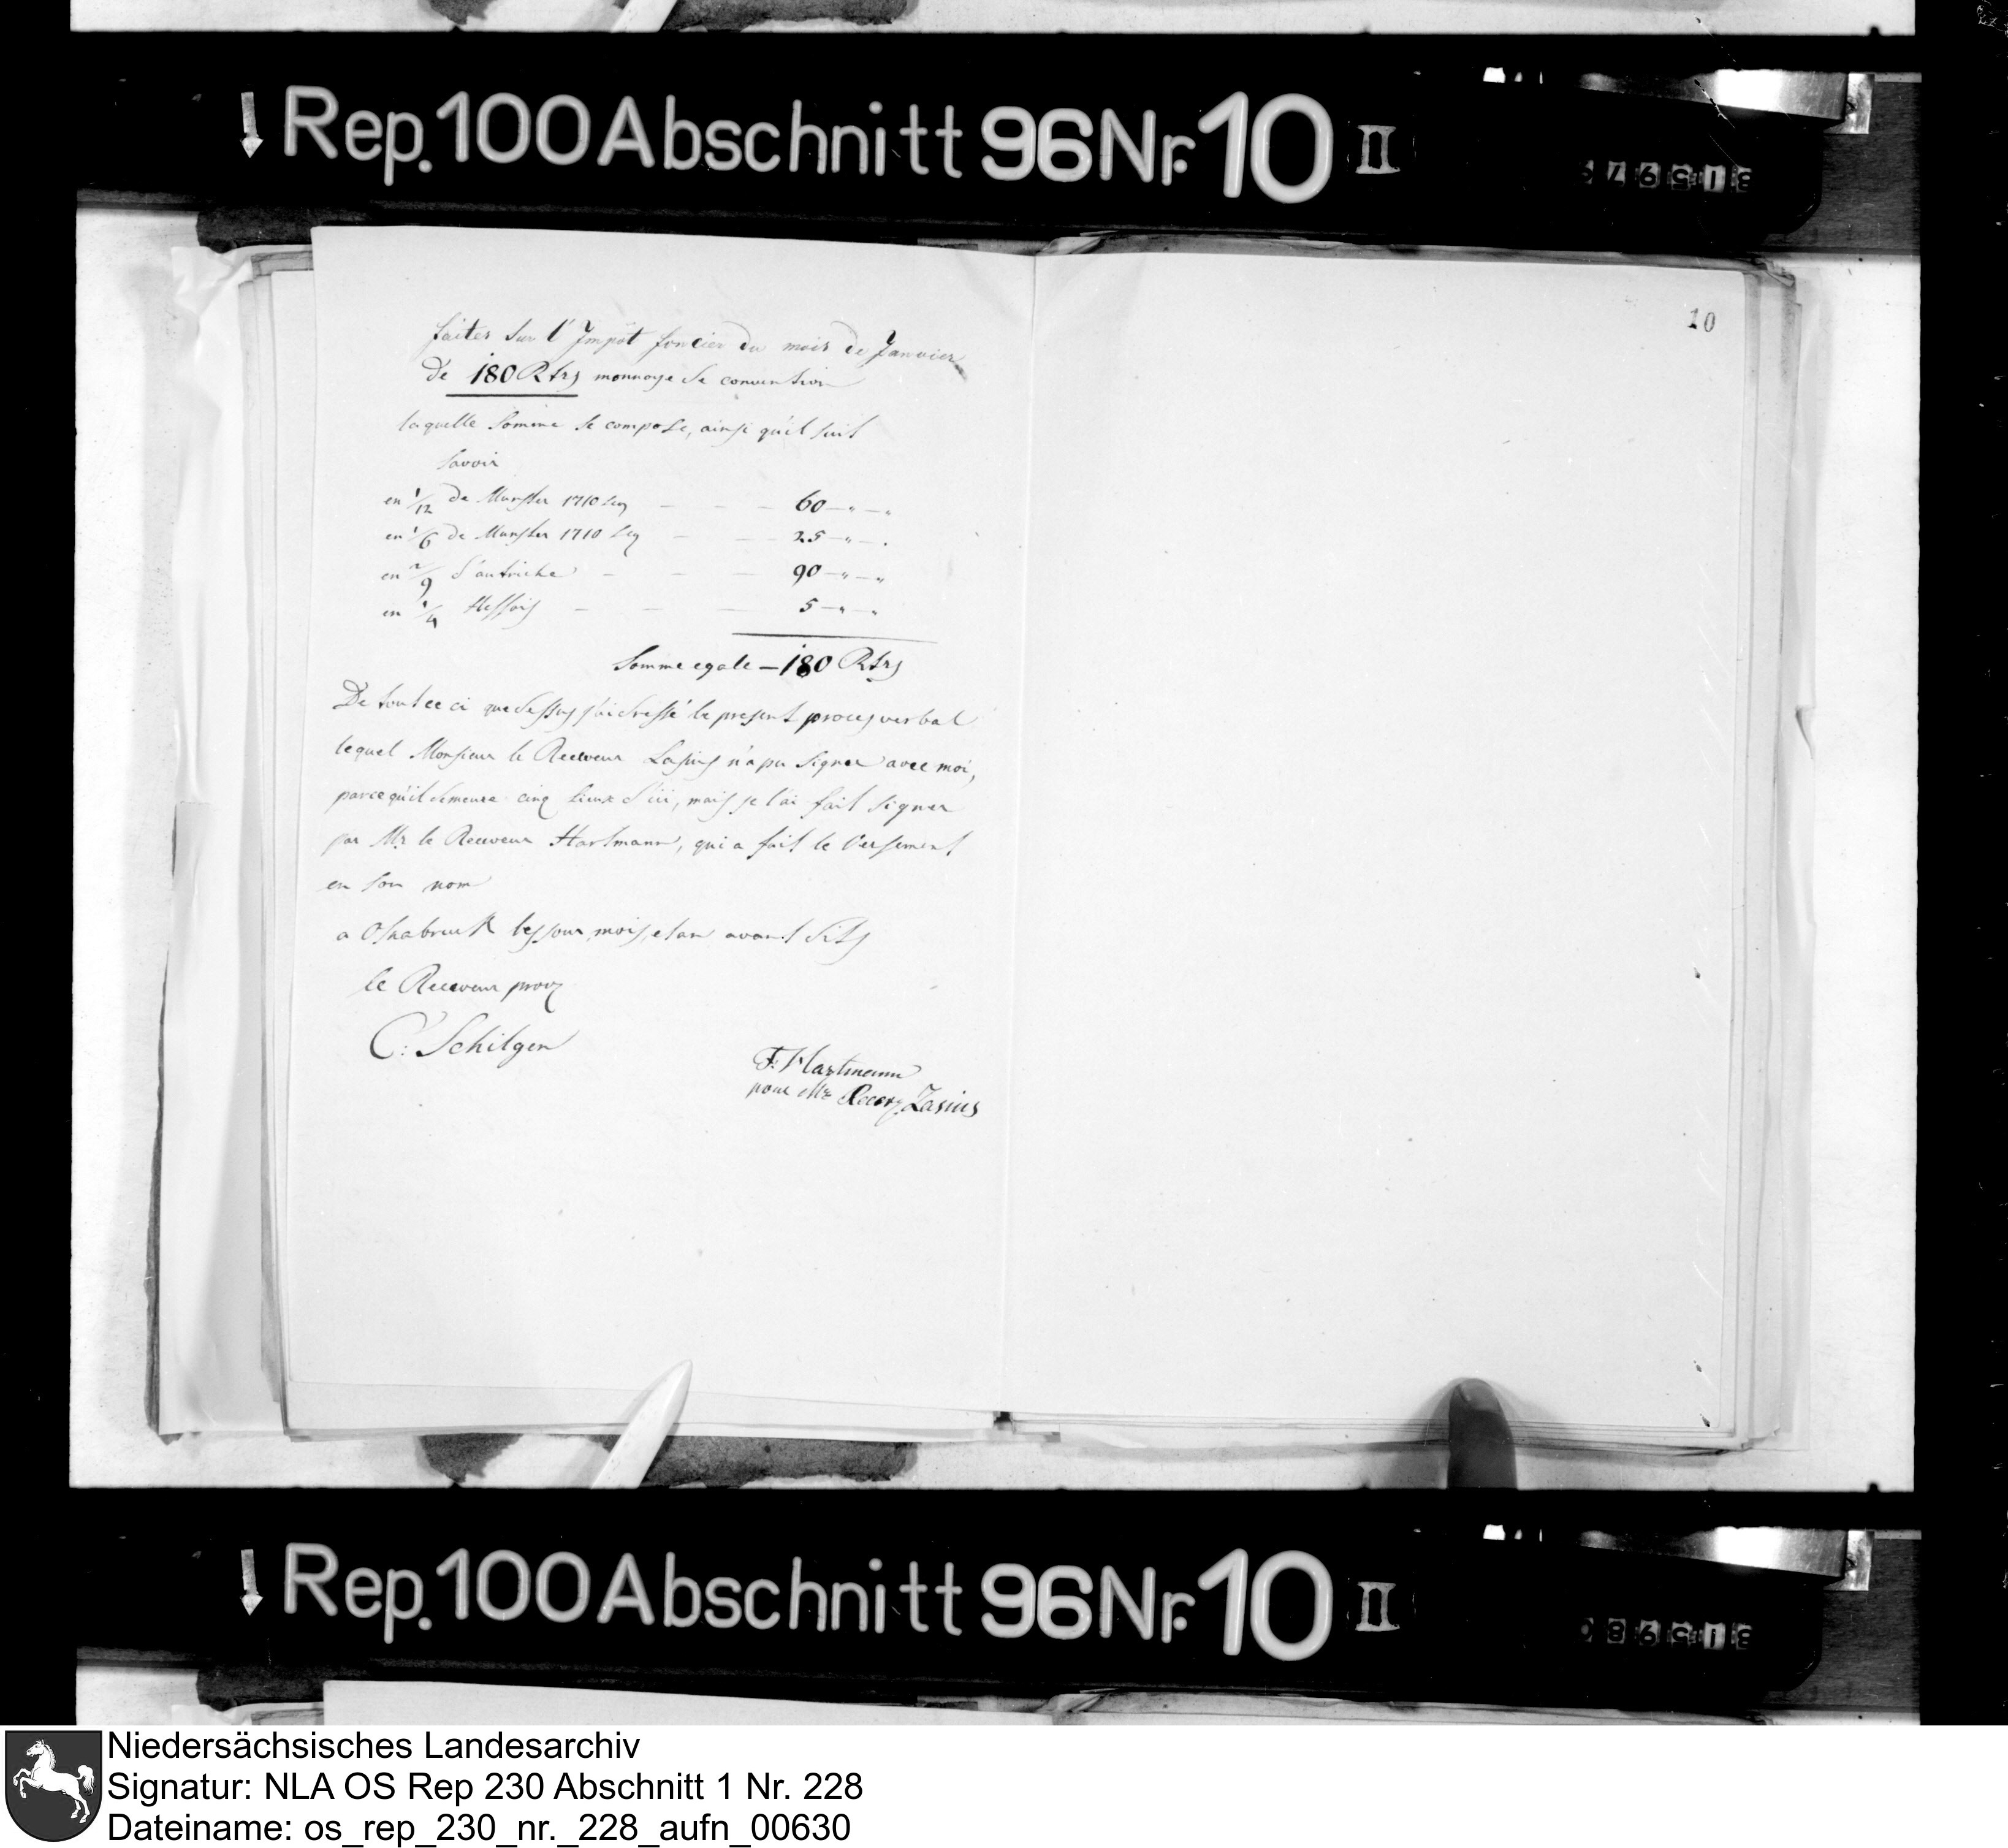 Rep. 100 Abschnitt 96 Nr. 10 II
10
faites sur l'Impôt foncier du mois de Janvier
de 180 Rtrs monnoye de convention
laquelle somme se compose, ainsi qu'il suit
savoir
en 1/12 de Munster 1710 — — — 60 — " — "
en 1/6 de Munster 1710 — — 25 — " — "
en 2/9 d'autriche — — — 90 — " — "
en 1/4 Hessois — — — 5 — " — "
Somme egale — 180 Rtrs
De tout ce ci que dessus j'ai dressé le present proces verbal
lequel Monsieur le Receveur Lasius n'a pu signer avec moi,
parce qu'il demeure cinq lieux d'ici, mais je l'ai fait signer
par Mr le Receveur Hartmann, qui a fait le versement
en son nom
a Osnabruck les jour, mois, et an avant dits
le Receveur prov
C: Schilgen
F. Hartmann
pour Mr Recev Lasius
Rep. 100 Abschnitt 96 Nr. 10 II
Niedersächsisches Landesarchiv
Signatur: NLA OS Rep 230 Abschnitt 1 Nr. 228
Dateiname: os_rep_230_nr._228_aufn_00630